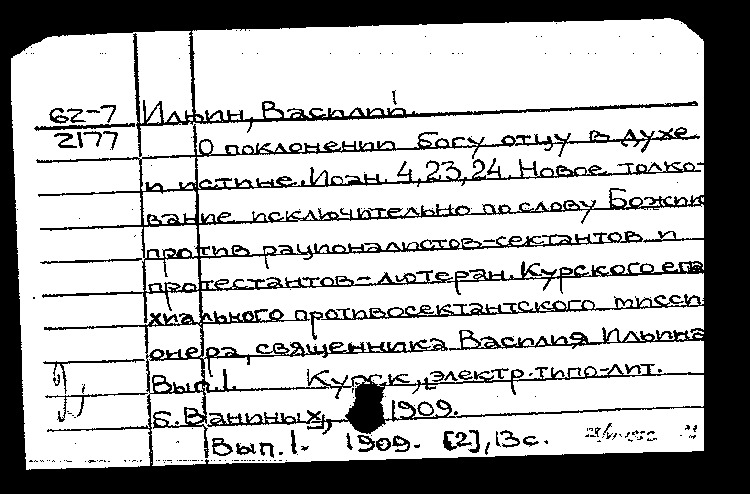 62-7 Ильин, Василий.
2177 О поклонении Богу отцу в духе
и истине. Иоан. 4,23,24. Новое толко-
вание исключительно по слову Божию
против рационалистов-сектантов и
протестантов-лютеран. Курского епа
хиального противосектантского мисси
онера, священника Василия Ильина
Вып.1. Курск, электр. типо-лит.
б. Ваниных, 1909.
Вып. 1. 1909. [2], 13 с.